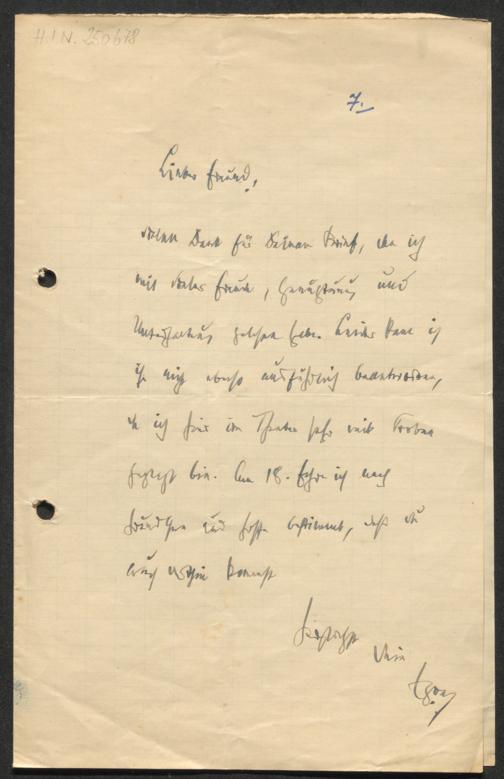 H.I.N. 250678
7.
Lieber Freund,
vielen Dank für Deinen Brief, den ich
mit vieler Freude, Genugtuung und
Unterhaltung gelesen habe. Leider kann ich
ihn nicht ebenso ausführlich beantworten,
da ich hier im Theater sehr mit Proben
geplagt bin. Am 18. fahre ich nach
und hoffe bestimmt, daß Du
auch dorthin kommst
Herzlichst
Dein
Egon